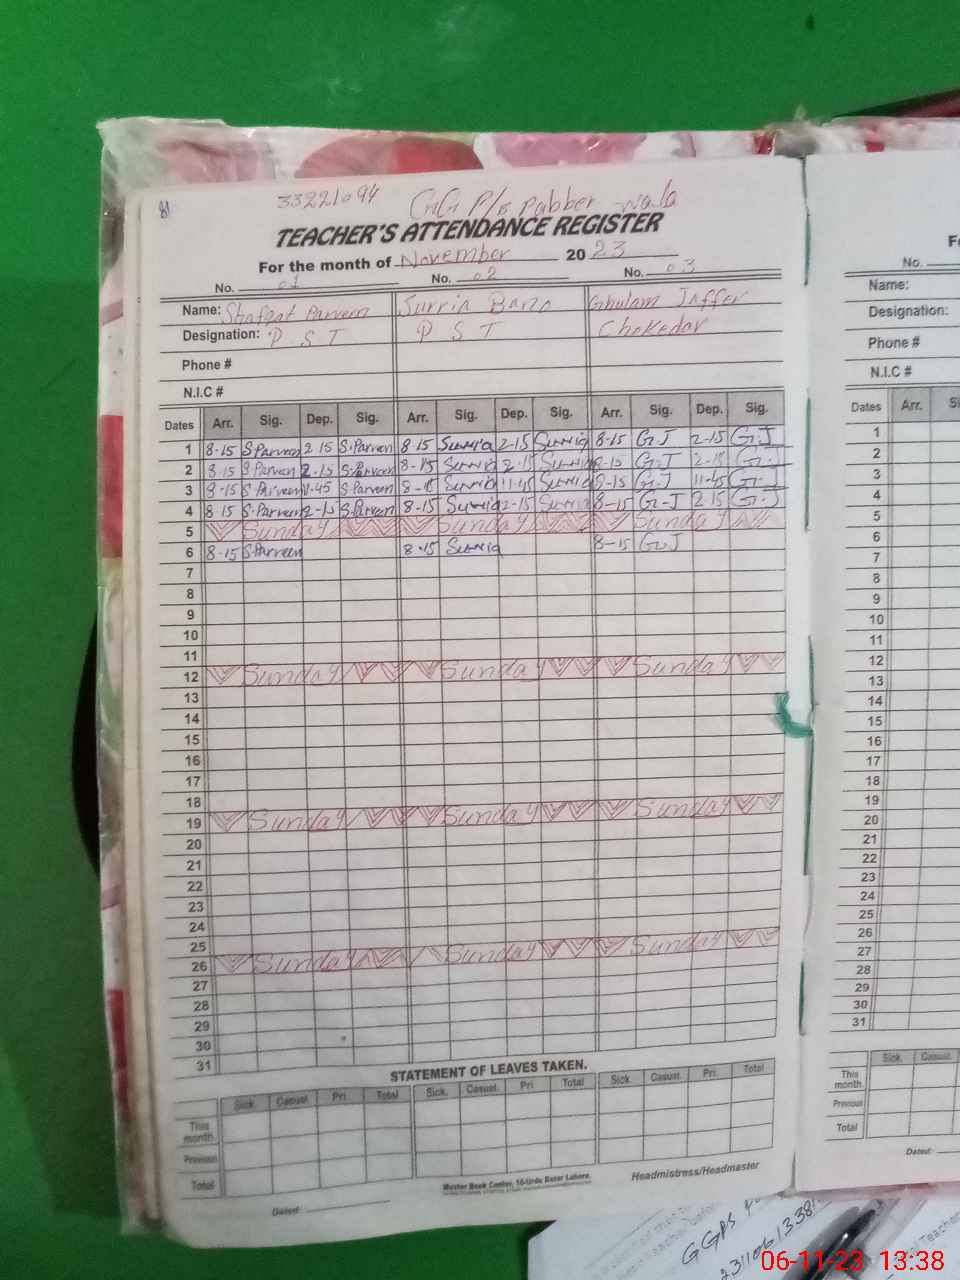 81
33221094 GG P/s Pabber wala
TEACHER'S ATTENDANCE REGISTER
For the month of November 2023
No. 01 No. 02 No. 03
Name: Shafeat Parveen Surria Bano Ghulam Jaffer
Designation: P S T P S T Chokedar
Phone #
N.I.C #
Dates Arr. Sig. Dep. Sig. Arr. Sig. Dep. Sig. Arr. Sig. Dep. Sig.
1 8-15 S.Parveen 2 15 S.Parveen 8 15 Surria 2-15 Surria 8-15 G.J 2-15 G.J
2 8-15 S.Parveen 2-15 S.Parveen 8-15 Surria 2-15 Surria 8-15 G.J 2-15 G.J
3 8-15 S.Parveen 11.45 S.Parveen 8-15 Surria 11-45 Surria 8-15 G.J 11-45 G.J
4 8-15 S.Parveen 2-15 S.Parveen 8-15 Surria 2-15 Surria 8-15 G-J 2 15 G-J
5 Sunday Sunday Sunday
6 8-15 S.Parveen 8-15 Surria 8-15 G.J
7
8
9
10
11
12 Sunday Sunday Sunday
13
14
15
16
17
18
19 Sunday Sunday Sunday
20
21
22
23
24
25
26 Sunday Sunday Sunday
27
28
29
30
31
STATEMENT OF LEAVES TAKEN.
Sick. Casual. Pri. Total Sick. Casual. Pri. Total Sick. Casual. Pri. Total
This month
Previous
Total
Master Book Center, 16-Urdu Bazar Lahore.
Headmistress/Headmaster
Dated:
No.
Name:
Designation:
Phone #
N.I.C #
Dates Arr.
1
2
3
4
5
6
7
8
9
10
11
12
13
14
15
16
17
18
19
20
21
22
23
24
25
26
27
28
29
30
31
Sick. Casual.
This month
Previous
Total
Dated:
GGPS
06-11-23 13:38